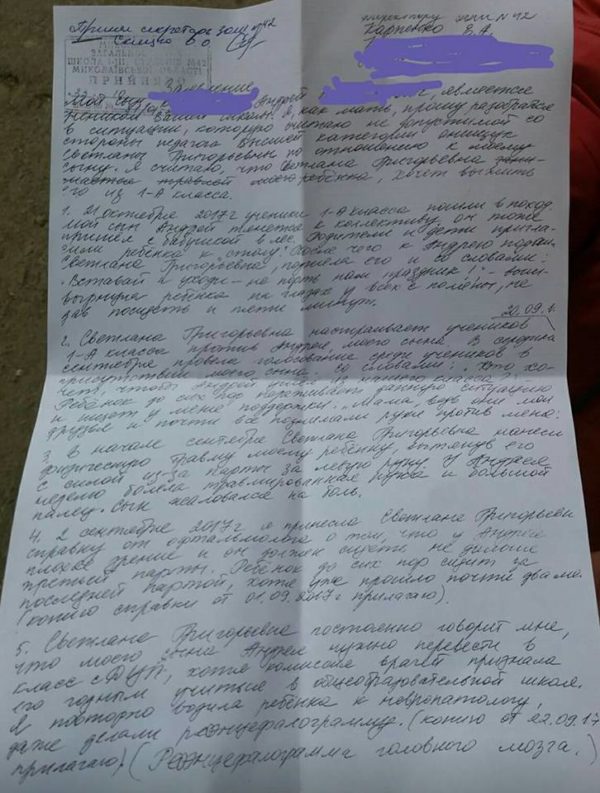 Принял секретарь ЗОШ №42
директору ЗОШ №42
Карпенко В.А.
ШКОЛА І-ІІІ СТУПЕНІВ №42
МИКОЛАЇВСЬКОЇ ОБЛАСТІ
ПРИЙНЯТО
Заявление
Мой сын Андрей является
учеником Вашей школы. Я, как мать, прошу разобраться
в ситуации, которую считаю не допустимой со
стороны педагога высшей категории Онищук
Светланы Григорьевны по отношению к моему
сыну. Я считаю, что Светлана Григорьевна
моего ребёнка, хочет выжить
его из 1-А класса.
1. 21 октября 2017г ученики 1-А класса пошли в поход.
Мой сын Андрей тянется к коллективу, он тоже
пришёл с бабушкой в лес. Родители и дети пригла-
сили ребёнка к столу. После чего к Андрею подошла
Светлана Григорьевна, подняла его и со словами:
„Вставай и уходи – не порть нам праздник!" –
выгрнула ребёнка на глазах у всех с поляны, не
дав посидеть и пяти минут.
20.09.1
2. Светлана Григорьевна настраивает учеников
1-А класса против Андрея, моего сына. В середине
сентября провела голосование среди учеников в
присутствии моего сына со словами: „Кто хо-
чет, чтобы Андрей ушёл из нашего класса
Ребёнок до сих пор переживает данную ситуацию
и ищет у меня поддержки. „Мама, ведь они мои
друзья и почти все подымали руки против меня.
3. В начале сентября Светлана Григорьевна нанесла
физическую травму моему ребёнку, вытянув его
с силой из-за парты за левую руку. У Андрея
неделю болела травмированная рука и большой
палец. Сын жаловался на боль.
4. 2 сентября 2017г я принесла Светлане Григорьевне
справку от офтальмолога о том, что у Андрея
плохое зрение и он должен сидеть не дальше
третьей парты. Ребёнок до сих пор сидит за
последней партой, хотя уже прошло почти два ме.
(копию справки от 01.09.2017г прилагаю).
5. Светлана Григорьевна постоянно говорит мне,
что моего сына Андрея нужно перевести в
класс с ДЦП, хотя комиссия врачей признала
его годным учиться в общеобразовательной школе.
Я повторно водила ребёнка к невропатологу,
даже делали реоэнцефалограмму. (копию от 22.09.17
прилагаю) (Реоэнцефалограмма головного мозга.)